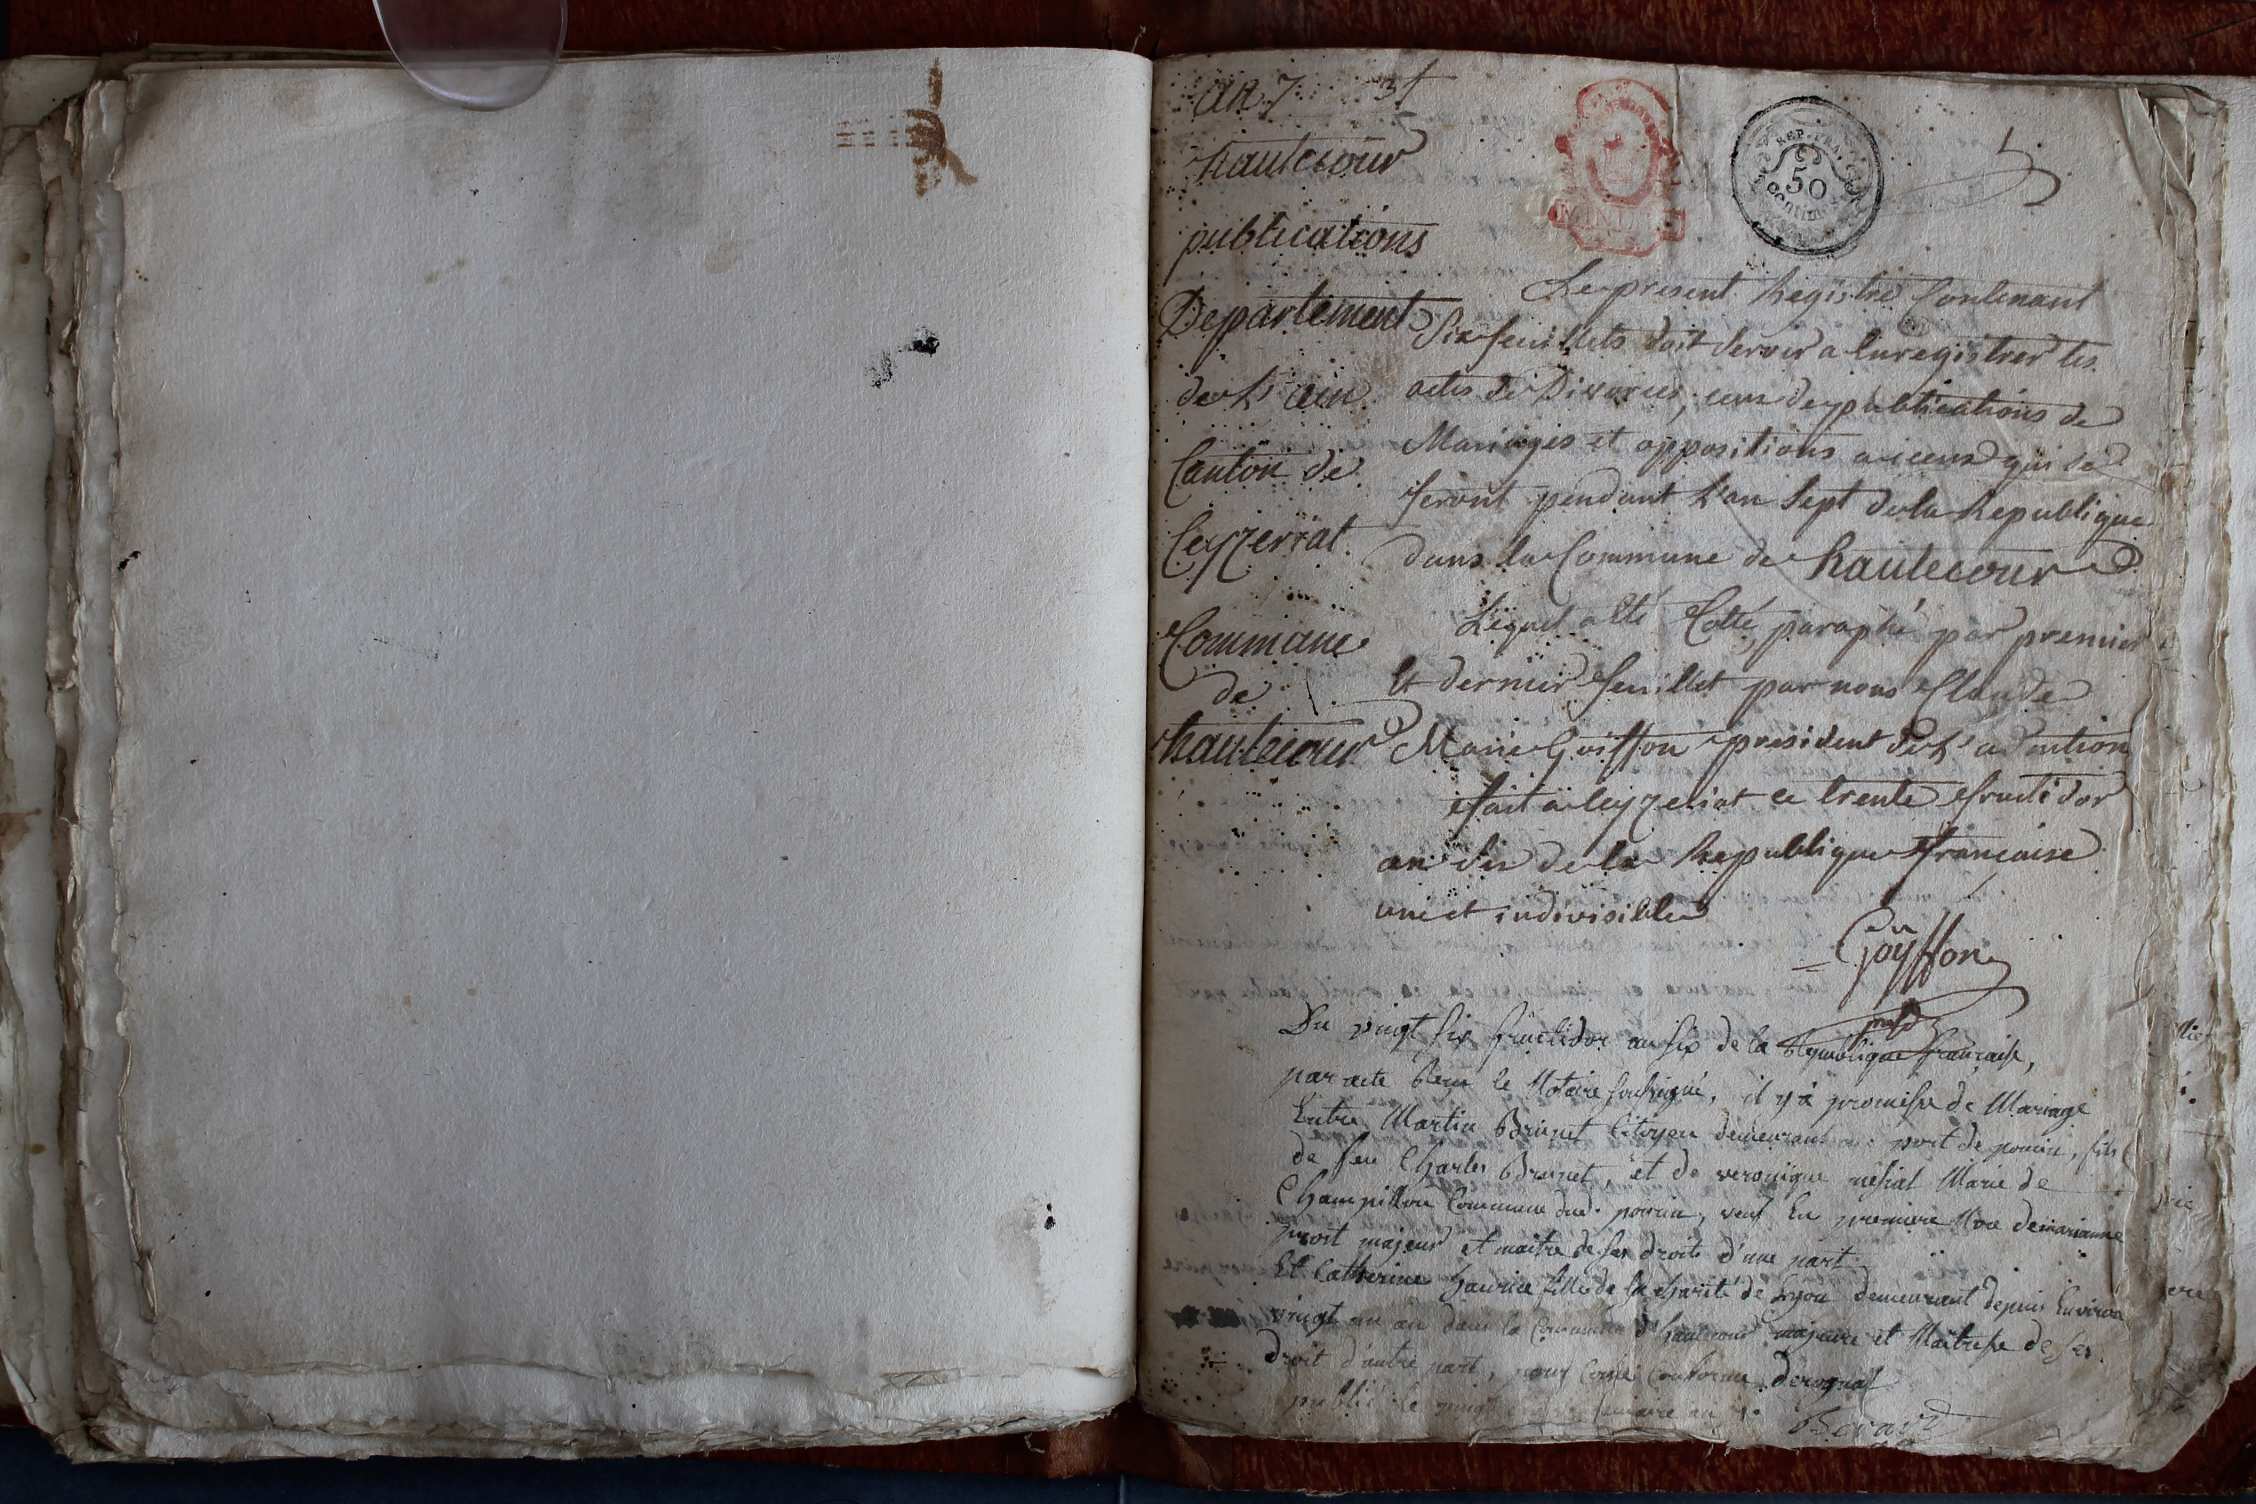 an 7
hautecour
publications
Departement
de L'ain
Canton de
Ceyzeriat
Commune
de
hautecour
REP. FRA.
50
centim.
Le present Registre Contenant
Six feuillets doit Servir a Enregistrer les
actes de Divorces, ceux de publications de
Mariages et oppositions a iceux qui se
feront pendant L'an Sept de la Republique
dans la Commune de hautecour
Lequel a Eté Cotté, paraphé par premier
Et dernier feuillet par nous Claude
Marie Goiffon president de L'adention
fait a Ceyzeriat ce trente fructidor
an Six de la Republique francaise
une et indivisible
Goyffon
presd
Du vingt six fructidor an six de la Republique française,
par acte Reçu le Notaire soussigné, il y a promesse de Mariage
Entre Martin Brunet Citoyen demeurant port de poncin, fils
de feu Charles Brunet, et de veronique Marie de
Champillon Commune dud. poncin, veuf En premiere Noce de marianne
majeur et maitre de ses droits d'une part
Et Catherine fille de la charité de Lyon demeurant depuis Environ
vingt un an dans la Commune d'hautecour majeure et Maitresse de ses
droit d'autre part, pour Copie Conforme
publié le vingt an